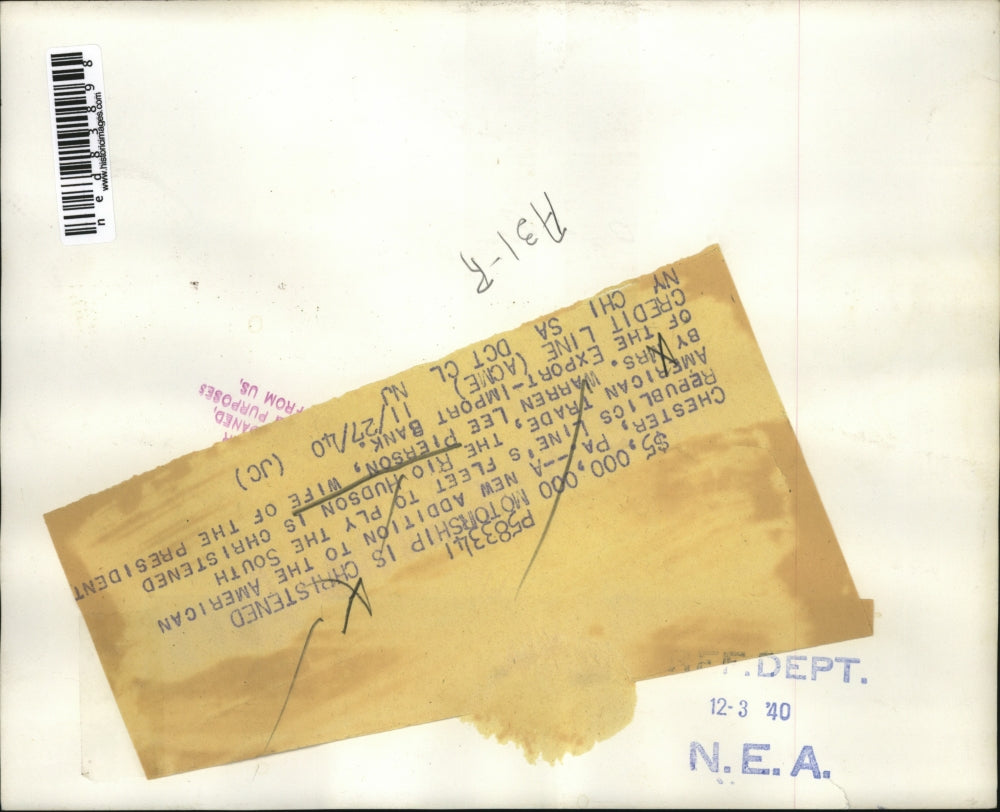 ned83898
www.historicimages.com
A31-R
P583341
$5,000,000 MOTORSHIP IS CHRISTENED
CHESTER, PA.--A NEW ADDITION TO THE AMERICAN
REPUBLICS LINE'S FLEET TO PLY THE SOUTH
AMERICAN TRADE, THE RIO HUDSON IS CHRISTENED
BY MRS. WARREN LEE PIERSON, WIFE OF THE PRESIDENT
OF THE EXPORT-IMPORT BANK.
CREDIT LINE (ACME) 11/27/40 (JC)
NY CHI SA DCT CL NJ
PURPOSES
FROM US,
REF.DEPT.
12-3 '40
N.E.A.